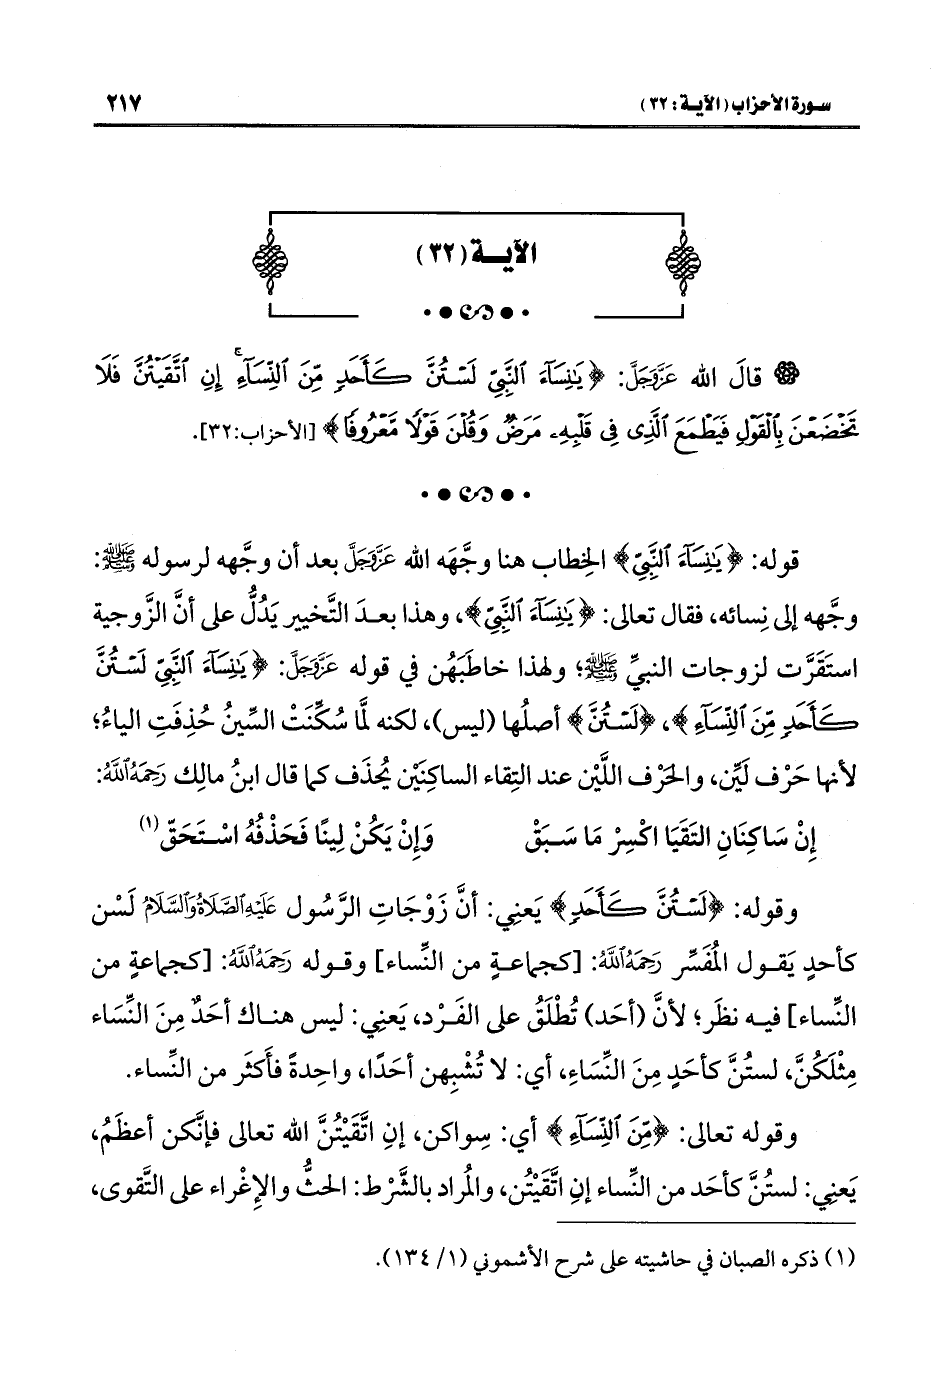 سورة الأحزاب (الآية: ٣٢) ٢١٧
الآيـة (٣٢)
قالَ الله عَزَّوَجَلَّ: ﴿يَٰنِسَآءَ ٱلنَّبِيِّ لَسۡتُنَّ كَأَحَدٖ مِّنَ ٱلنِّسَآءِۚ إِنِ ٱتَّقَيۡتُنَّ فَلَا
تَخۡضَعۡنَ بِٱلۡقَوۡلِ فَيَطۡمَعَ ٱلَّذِي فِي قَلۡبِهِۦ مَرَضٞ وَقُلۡنَ قَوۡلٗا مَّعۡرُوفٗا﴾ [الأحزاب:٣٢].
قوله: ﴿يَٰنِسَآءَ ٱلنَّبِيِّ﴾ الخِطاب هنا وجَّهَه الله عَزَّوَجَلَّ بعد أن وجَّهه لرسوله ﷺ:
وجَّهه إلى نِسائه، فقال تعالى: ﴿يَٰنِسَآءَ ٱلنَّبِيِّ﴾، وهذا بعـدَ التَّخيير يَدُلُّ على أنَّ الزَّوجية
استَقَرَّت لزوجات النبيِّ ﷺ؛ ولهذا خاطَبَهُن في قوله عَزَّوَجَلَّ: ﴿يَٰنِسَآءَ ٱلنَّبِيِّ لَسۡتُنَّ
كَأَحَدٖ مِّنَ ٱلنِّسَآءِ﴾، ﴿لَسۡتُنَّ﴾ أصلُها (ليس)، لكنه لمَّا سُكِّنَتْ السِّينُ حُذِفَتِ الياءُ؛
لأنها حَرْف لَيِّن، والحَرْف اللَّيْن عند التِقاء الساكنَيْن يُحذَف كما قال ابنُ مالِك رَحِمَهُ ٱللَّهُ:
إِنْ سَاكِنَانِ التَقَيَا اكْسِرْ مَا سَـبَقْ وَإِنْ يَكُنْ لِينًا فَحَذْفُهُ اسْـتَحَقّ(١)
وقوله: ﴿لَسۡتُنَّ كَأَحَدٖ﴾ يَعنِي: أنَّ زَوْجَاتِ الرَّسُول عَلَيْهِ ٱلصَّلَاةُ وَٱلسَّلَامُ لَسْن
كأحدٍ يَقـول المُفَسِّر رَحِمَهُ ٱللَّهُ: [كجماعـةٍ من النِّساء] وقـوله رَحِمَهُ ٱللَّهُ: [كجماعةٍ من
النِّساء] فيـه نظَر؛ لأنَّ (أحَد) تُطْلَقُ على الفَـرْد، يَعنِي: ليس هنـاك أحَدٌ مِنَ النِّسَاء
مِثْلَكُنَّ، لستُنَّ كأحَدٍ مِنَ النِّسَاءِ، أي: لا تُشْبِهن أحَدًا، واحِدةً فأَكثَر من النِّساء.
وقوله تعالى: ﴿مِّنَ ٱلنِّسَآءِ﴾ أي: سِواكن، إنِ اتَّقَيْتُنَّ الله تعالى فإنَّكن أعظَمُ،
يَعنِي: لستُنَّ كأحَد من النِّساء إنِ اتَّقَيْتُن، والمُراد بالشَّرْط: الحَثُّ والإِغْراء على التَّقوى،
(١) ذكره الصبان في حاشيته على شرح الأشموني (١/ ١٣٤).